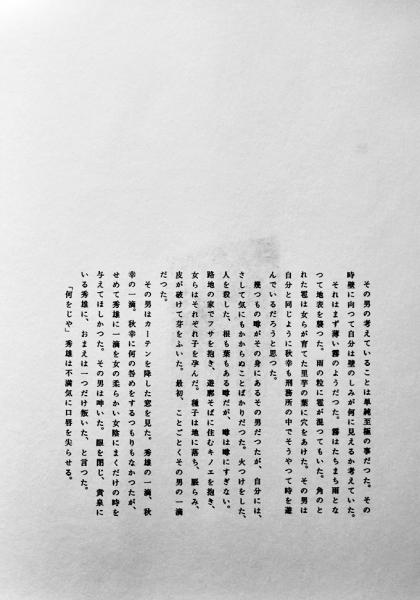 その男の考えていることは単純至極の事だつた。その
時壁に向つて自分は壁のしみが何に見えるか考えていた。
それはまず薄い霧のようだつた。霧はたちまち雨とな
つて地表を襲つた。雨の粒に雹が混つてもいた。角のと
れた雹は女らが育てた里芋の葉に穴をあけた。その男は
自分と同じように秋幸も刑務所の中でそうやつて時を遊
んでいるだろうと思つた。
幾つもの噂がその身にあるその男だつたが、自分には、
さして気にもかからぬことばかりだつた。火つけをした、
人を殺した。根も葉もある噂だが、噂は噂にすぎない。
路地の家でフサを抱き、遊廓そばに住むキノエを抱き、
女らはそれぞれ子を孕んだ。種子は地に落ち、脹らみ、
皮が破けて芽をふいた。最初、ことごとくその男の一滴
だつた。
その男はカーテンを降した窓を見た。秀雄の一滴、秋
幸の一滴。秋幸に何の咎めをするつもりもなかつたが、
せめて秀雄に一滴を女の柔らかい女陰にまくだけの時を
与えてほしかつた。その男は呻いた。眼を閉じ、黄泉に
いる秀雄に、おまえは一つだけ叛いた、と言つた。
「何をじや」秀雄は不満気に口唇を尖らせる。